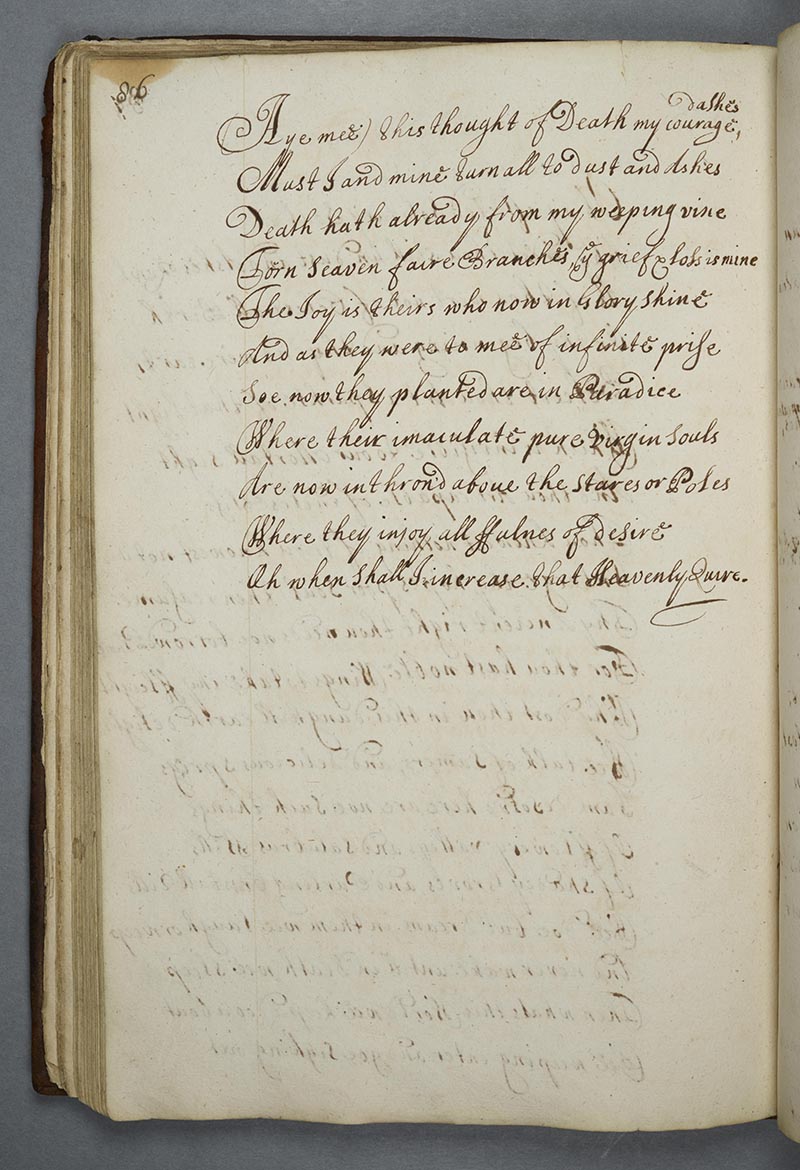 86
dashes
(Aye mee) this thought of Death my courage,
Must I and mine turn all to dust and Ashes
Death hath already from my weeping vine
Torn seaven faire Branches, ye grief & loss is mine
The Joy is theirs who now in Glory shine
And as they were to mee of infinite prise
Soe now they planted are in Paradice
Where their imaculate pure virgin souls
Are now inthron'd above the Stares or Poles
Where they injoy all ffulnes of desire
Oh when shall I increase that Heavenly Quire.